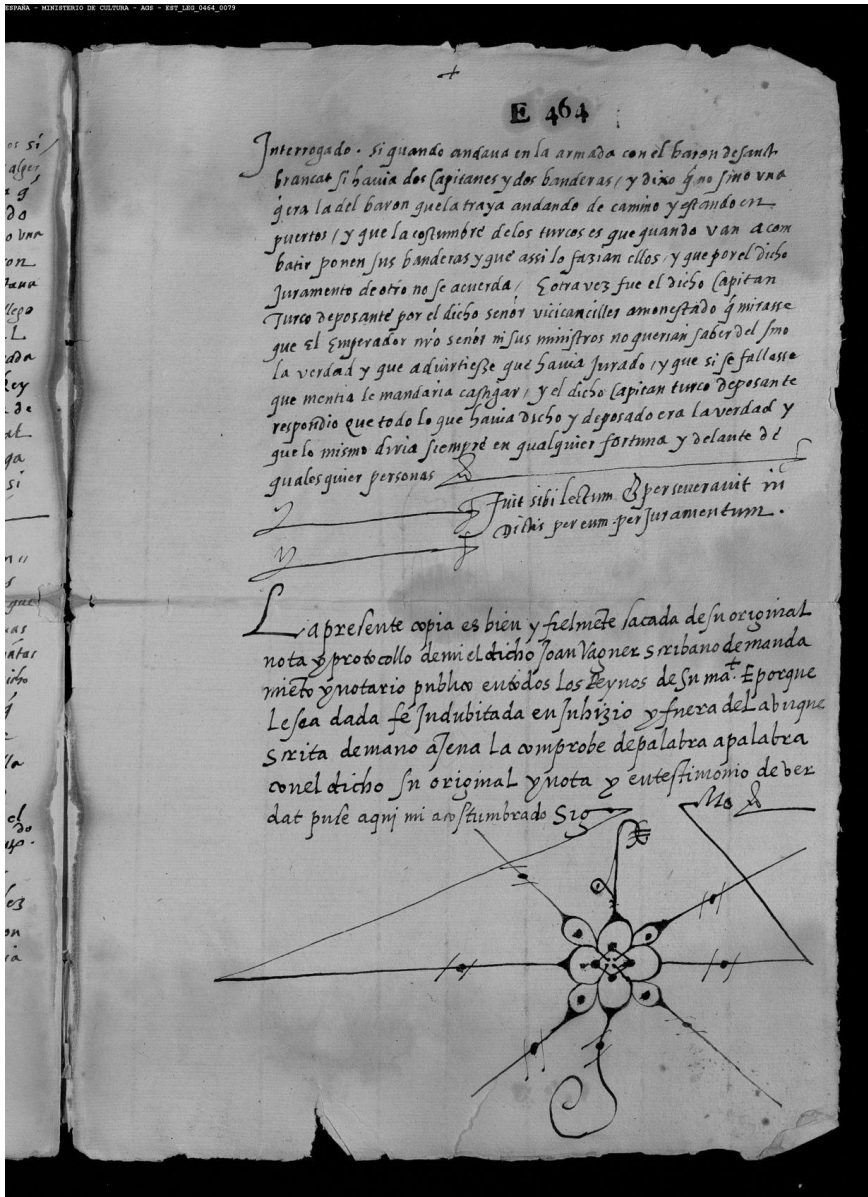 ESPAÑA - MINISTERIO DE CULTURA - AGS - EST_LEG_0464_0079
E 464
Interrogado . si quando andava en la armada con el baron de sanct
brancat si havia dos capitanes y dos banderas / y dixo q̃ no sino vna
q̃ era la del baron que la traya andando de camino y estando en
puertos / y que la costumbre delos turcos es que quando van a com
batir ponen sus banderas y que assi lo fazian ellos / y que por el dicho
Juramento de otro no se acuerda / E otra vez fue el dicho Capitan
Turco deposante por el dicho señor vicicanciller amonestado q̃ mirasse
que El Emperador nr̃o señor ni sus ministros no querian saber del sino
la verdad y que advirtiesze que havia Jurado / y que si se fallasse
que mentia le mandaria castigar / y el dicho Capitan turco deposante
respondio que todo lo que havia dicho y deposado era la verdad y
que lo mismo diria siempre en qualquier fortuna y delante de
qualesquier personas
Fuit sibi lectum & perseveravit in
Dictis per eum per Juramentum .
La presente copia es bien y fielmẽte sacada de su original
nota y protocollo de mi el dicho Joan Vagner scribano de manda
miẽto y notario publico en todos los Reynos de su ma.t E porque
le sea dada fe Indubitada en Juhizio y fuera del abunque
scrita de mano ajena la comprobe de palabra a palabra
con el dicho su original y nota y en testimonio de ver
dat puse aqui mi acostumbrado Sig
No